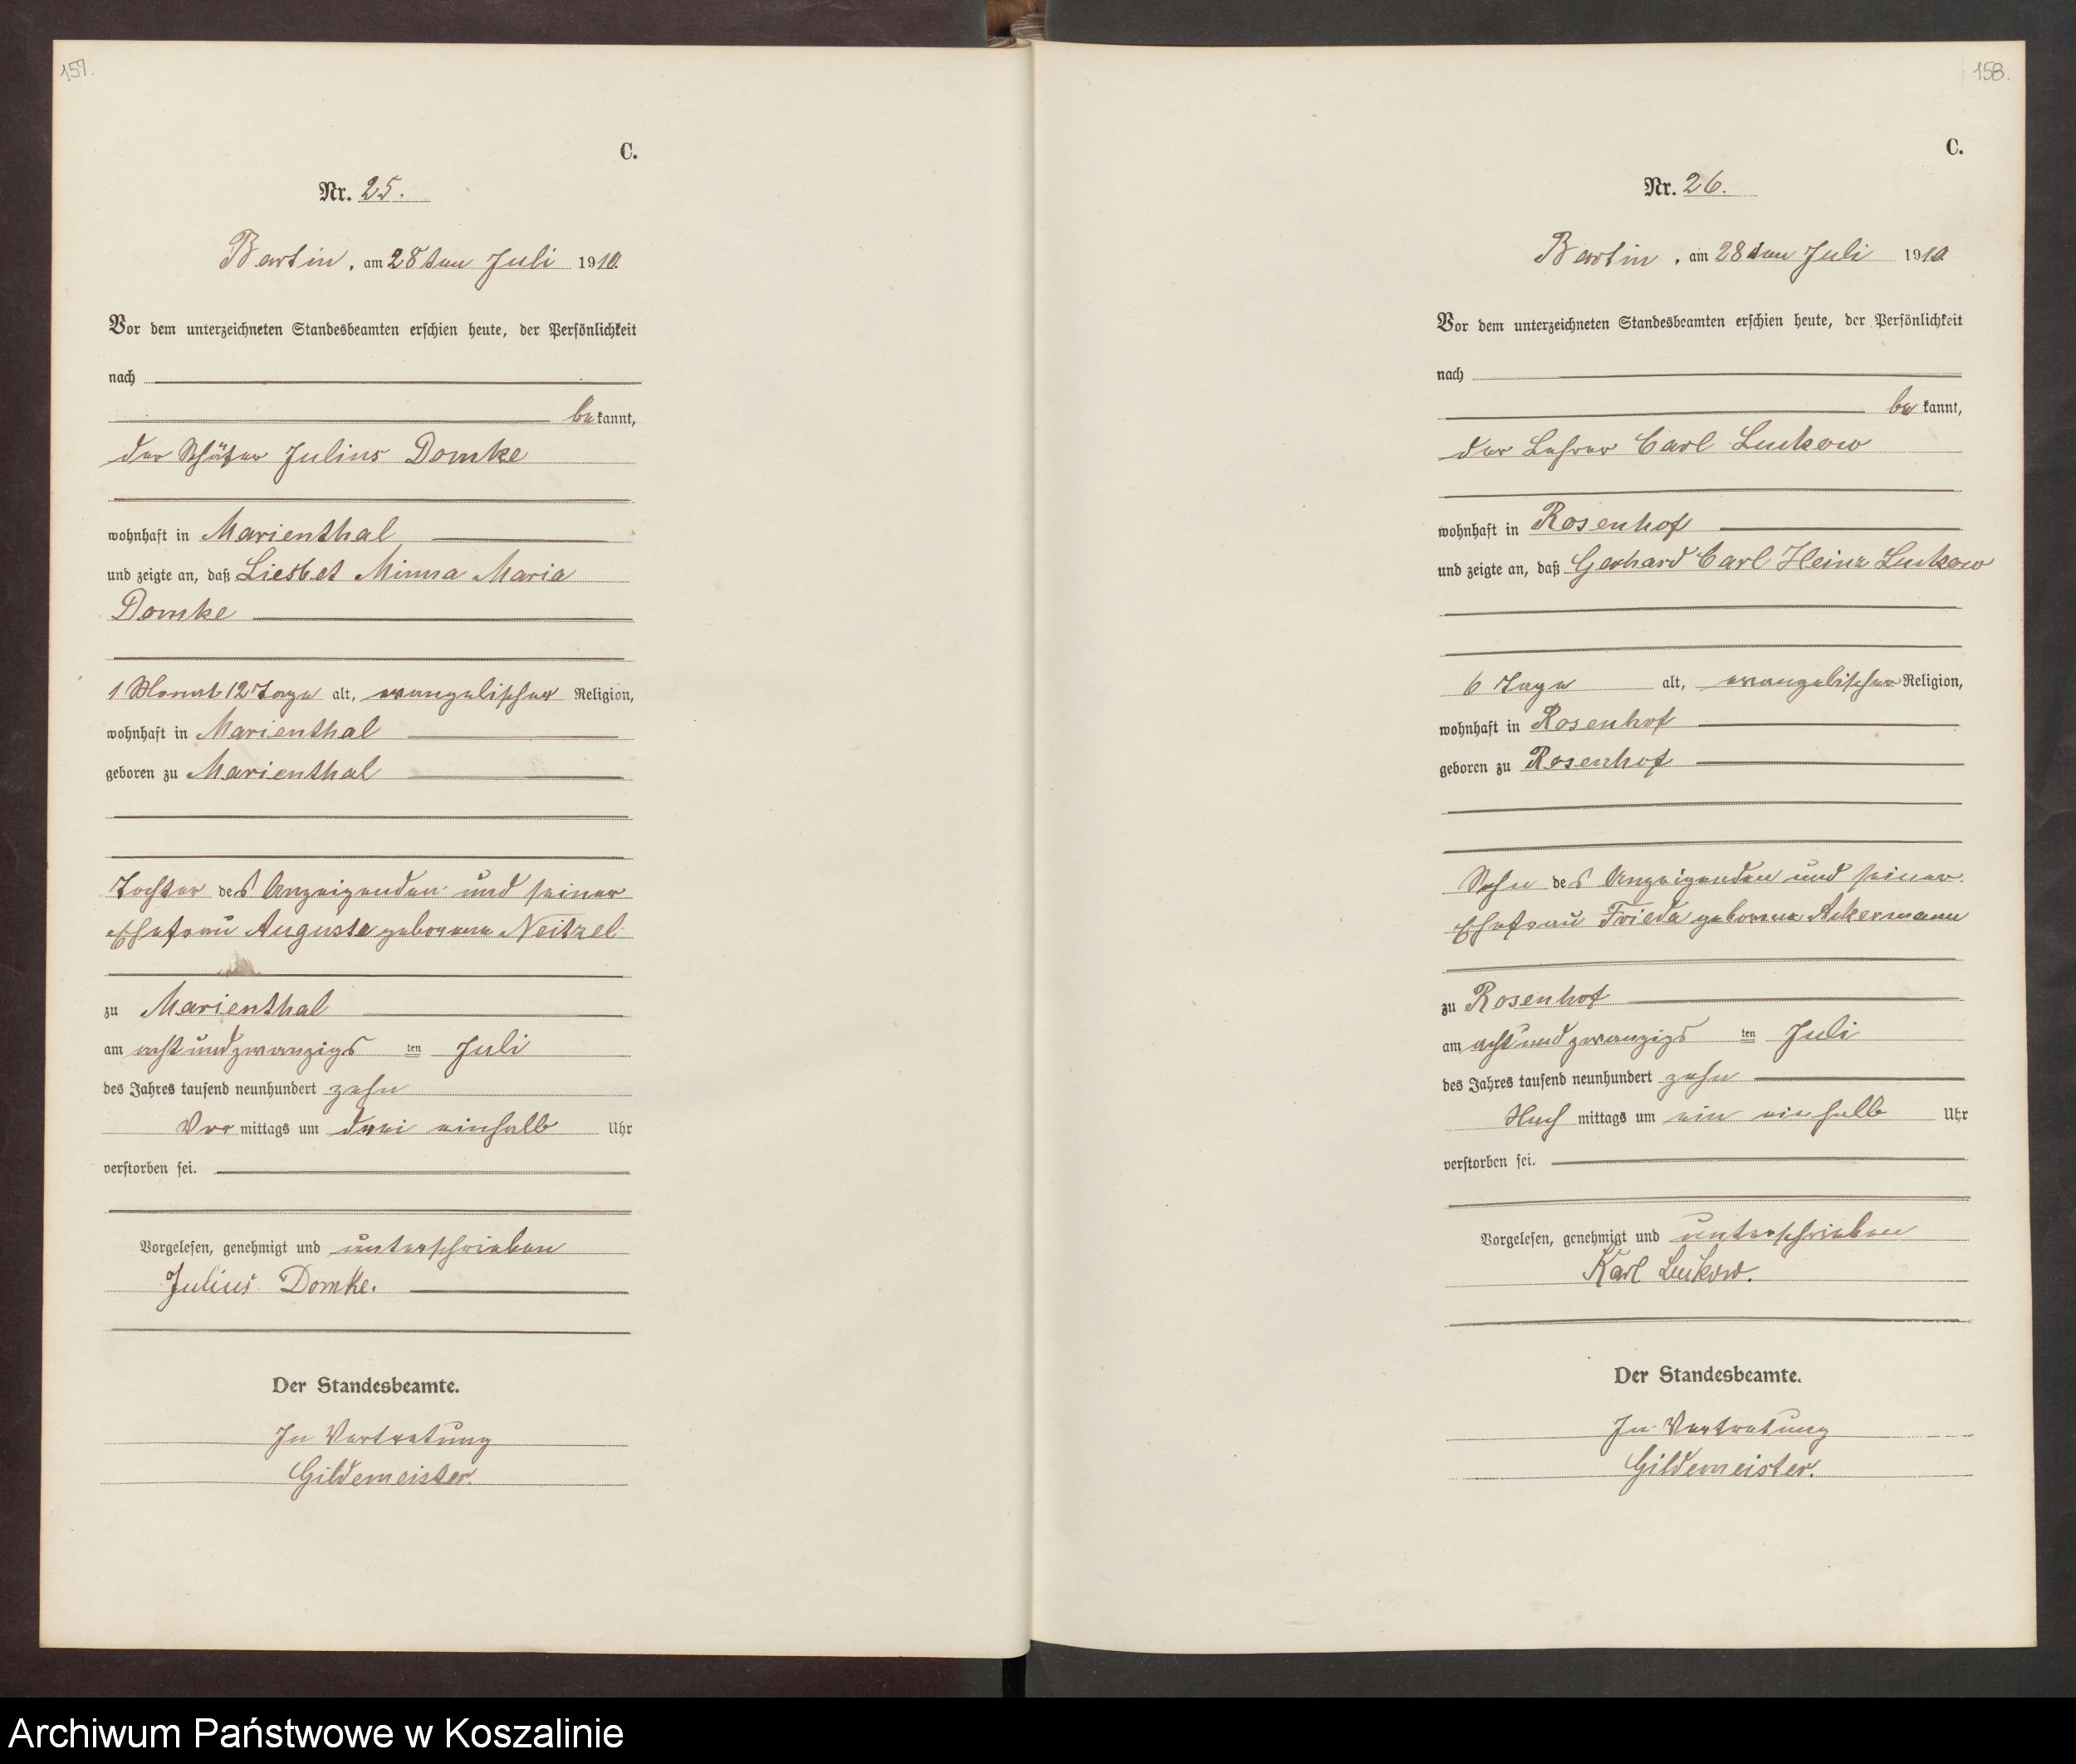 157.
C.
Nr. 25.
Bartin, am 28ten Juli 1910.
Vor dem unterzeichneten Standesbeamten erschien heute, der Persönlichkeit
nach
bekannt,
der Schäfer Julius Domke
wohnhaft in Marienthal
und zeigte an, daß Liesbet Minna Maria
Domke
1 Monat 12 Tage alt, evangelischer Religion,
wohnhaft in Marienthal
geboren zu Marienthal
Tochter des Anzeigenden und seiner
Ehefrau Auguste geborene Neitzel
zu Marienthal
am acht und zwanzigs ten Juli
des Jahres tausend neunhundert zehn
Vor mittags um drei einhalb Uhr
verstorben sei.
Vorgelesen, genehmigt und unterschrieben
Julius Domke.
Der Standesbeamte.
In Vertretung
Gildemeister.
158.
C.
Nr. 26.
Bartin, am 28ten Juli 1910
Vor dem unterzeichneten Standesbeamten erschien heute, der Persönlichkeit
nach
bekannt,
der Lehrer Carl Luckow
wohnhaft in Rosenhof
und zeigte an, daß Gerhard Carl Heinz Luckow
6 Tage alt, evangelischer Religion,
wohnhaft in Rosenhof
geboren zu Rosenhof
Sohn des Anzeigenden und seiner
Ehefrau Frieda geborene Ackermann
zu Rosenhof
am acht und zwanzigs ten Juli
des Jahres tausend neunhundert zehn
Nach mittags um ein einhalb Uhr
verstorben sei.
Vorgelesen, genehmigt und unterschrieben
Karl Luckow.
Der Standesbeamte.
In Vertretung
Gildemeister.
Archiwum Państwowe w Koszalinie